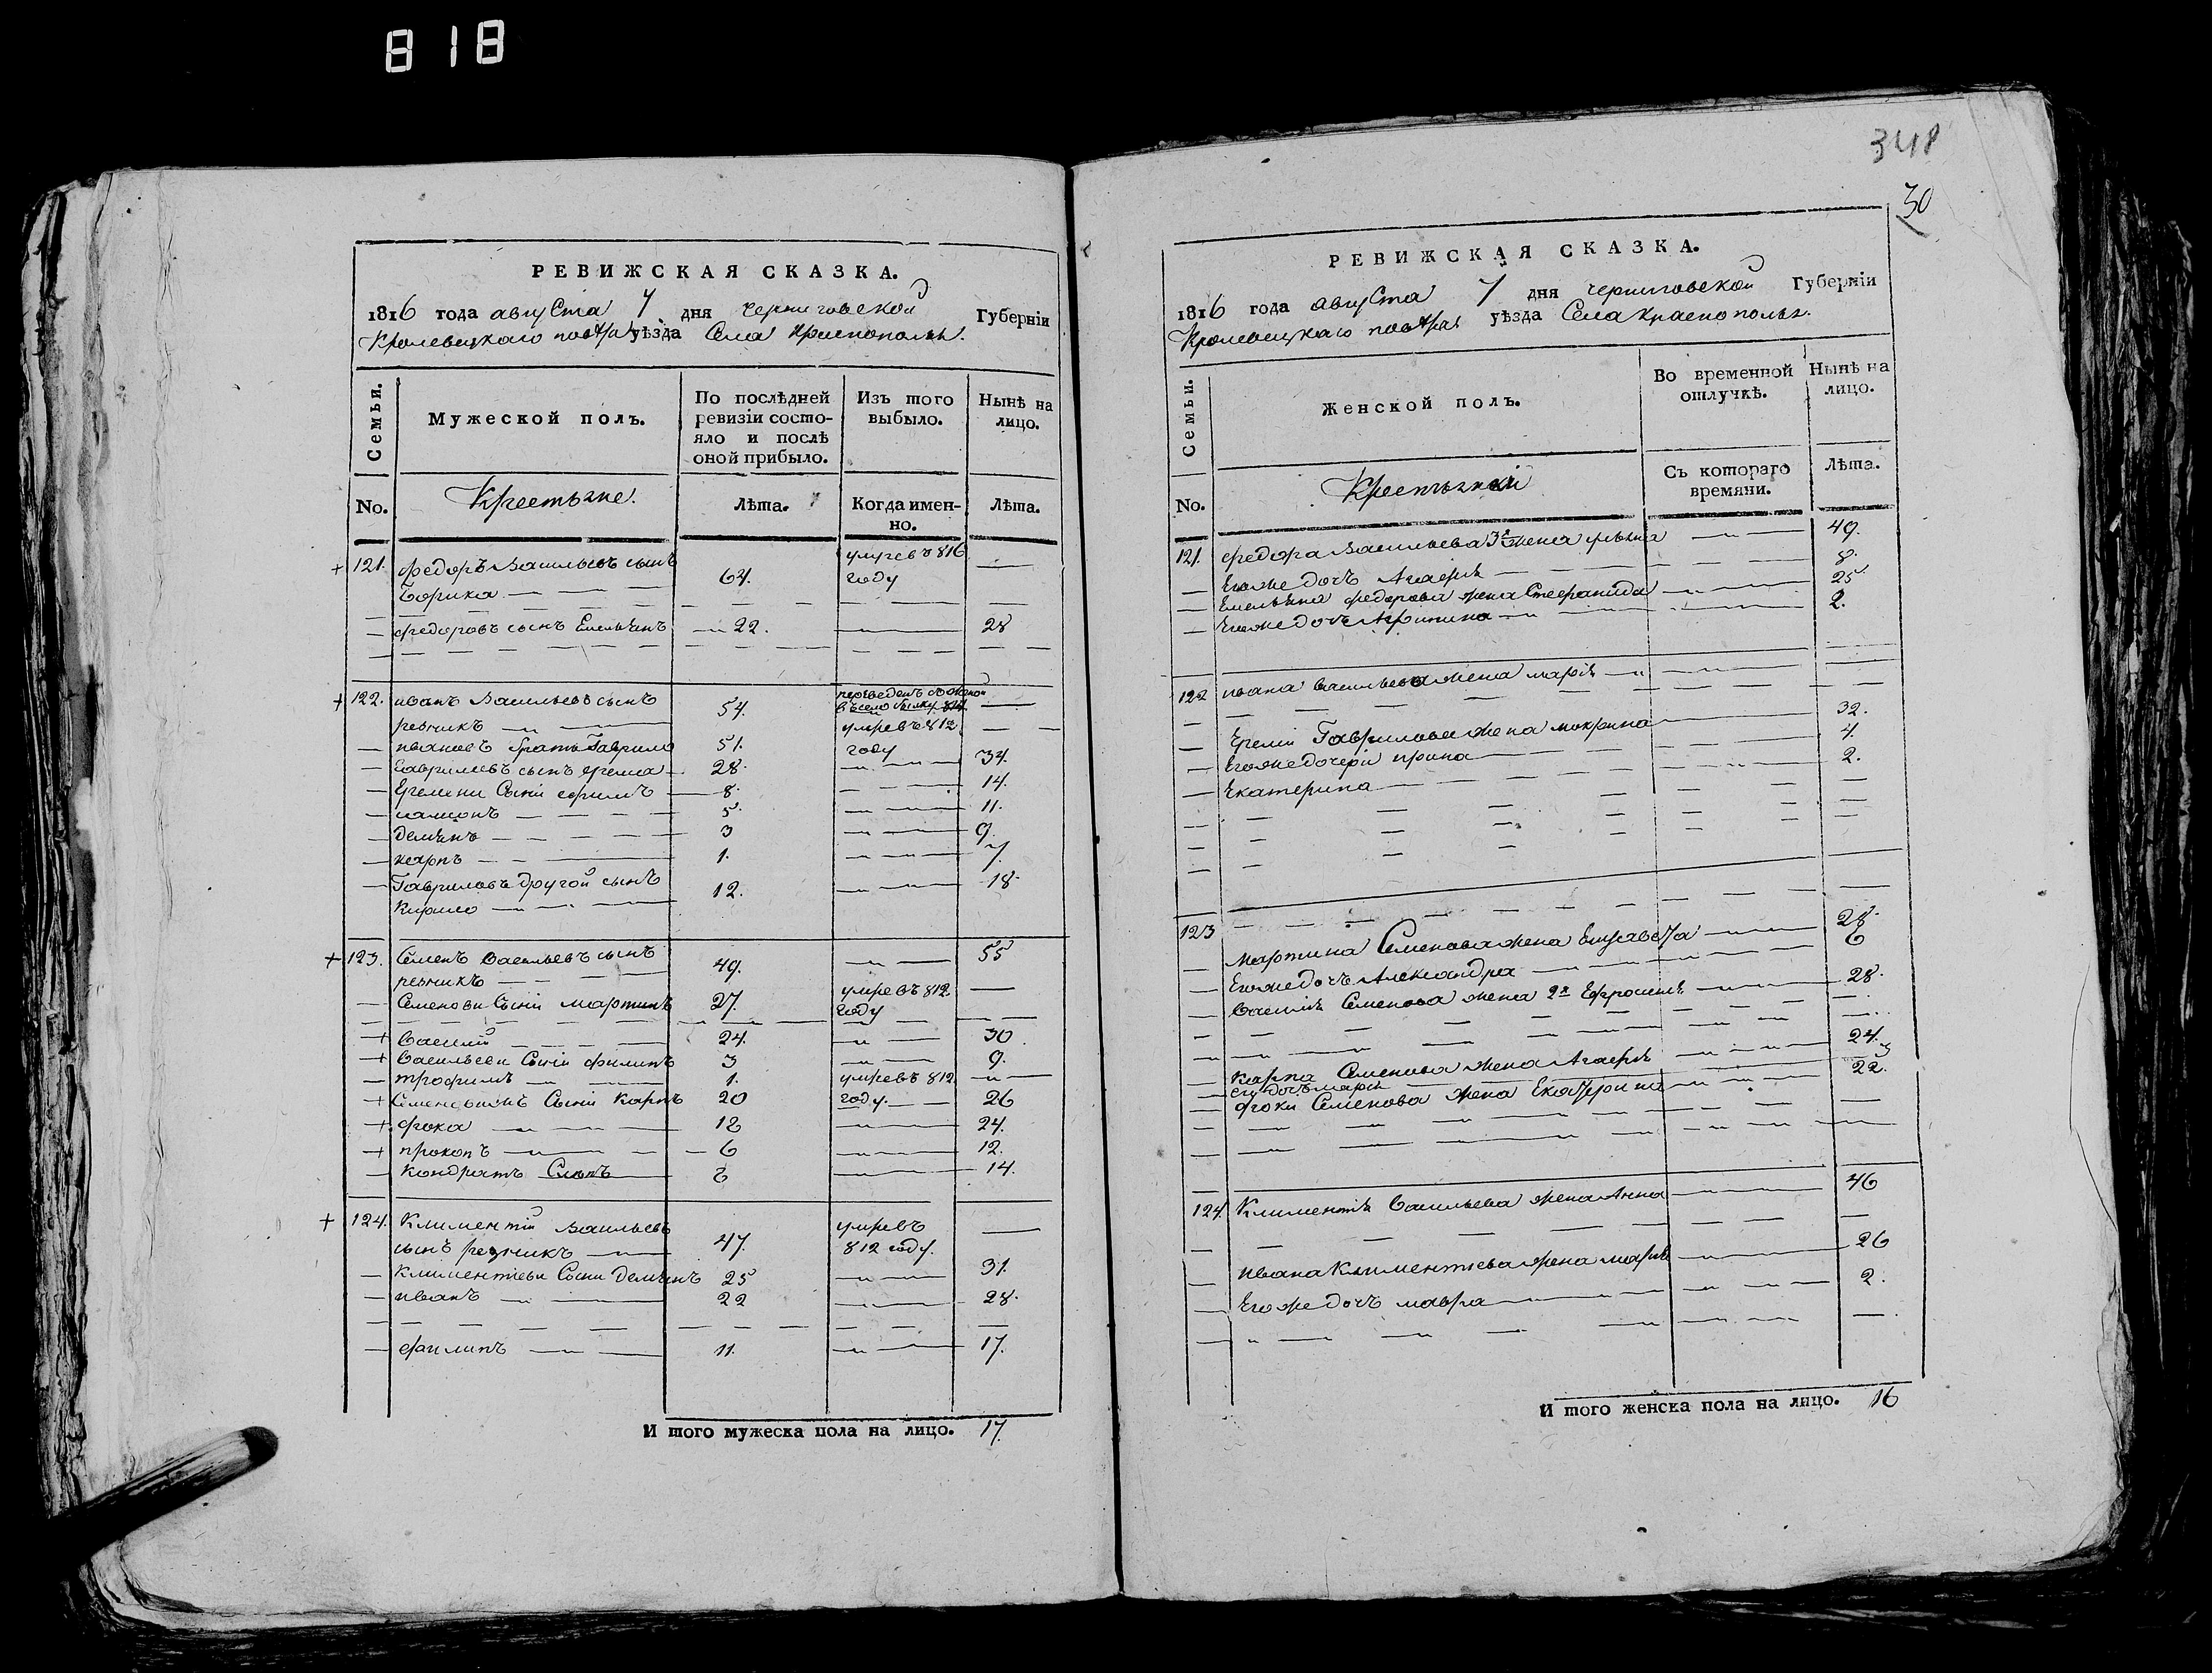 818
РЕВИЖСКАЯ СКАЗКА.
1816 года августа 7 дня Черниговской Губерніи
Кролевецкаго повѣта уѣзда Села Краснополья.
Семьи.
Мужеской полъ.
По послѣдней ревизіи состо-
яло и послѣ
оной прибыло.
Изъ того
выбыло.
Нынѣ на
лицо.
No.
Крестьяне.
Лѣта.
Когда имен-
но.
Лѣта.
+ 121. Федоръ Васильевъ сынъ 64. умре въ 816
Борика году
Федоровъ сынъ Емельянъ 22. 28
+ 122. иванъ Васильевъ сынъ 54. переведенъ съ женой
резникъ в село
ивановъ братъ Гаврило 51. умре въ 812 году
Гавриловъ сынъ ерема 28. 34.
Еремеи Сыни ефимъ 8. 14.
самсонъ 5. 11.
демянъ 3 9.
карпъ 1. 7.
Гавриловъ другой сынъ 12. 18
Кирило
+ 123. Семенъ Васильевъ сынъ 49. 55
резникъ
Семенови Сыни мартинъ 27. умре въ 812 году
+ Василий 24. 30
+ Васильеви Сыни филипъ 3 9.
трофимъ 1. умре въ 812 году
+ Сыни Карпъ 20 26
+ фока 18 24.
+ прокопъ 6 12.
Кондратъ 8 14.
+ 124. Климентий Васильевъ 47. умре въ
сынъ резникъ 812 году.
Климентіеви Сыни демянъ 25 31.
иванъ 22 28.
филипъ 11. 17.
И того мужеска пола на лицо. 17.
348
30
РЕВИЖСКАЯ СКАЗКА.
1816 года августа 7 дня Черниговской Губерніи
Кролевецкаго повѣта уѣзда Села Краснополья.
Семьи.
Женской полъ.
Во временной
отлучкѣ.
Нынѣ на
лицо.
No.
Крестьянки
Съ котораго
времяни.
Лѣта.
121. Федора Васильева 3я жена 49.
Егоже дочъ Агафія 8.
Емельяна Федорова жена Стефанида 25
Егоже дочъ 2.
122 ивана васильева жена марія
Еремы Гаврилова жена мокрина 32.
Егоже дочери ирина 4.
Екатерина 2.
123
Мартина Семенова жена Елисавета 28.
Егоже дочъ Александра 6
Василія Семенова жена 2я Ефросинія 28.
Карпа Семенова жена Агафія 24.
дочъ марія 3
Фоки Семенова жена Екатерина 22.
124. Климентія Васильева жена Анна 46
ивана Климентіева жена марія 26
Егоже дочъ мавра 2.
И того женска пола на лицо. 16